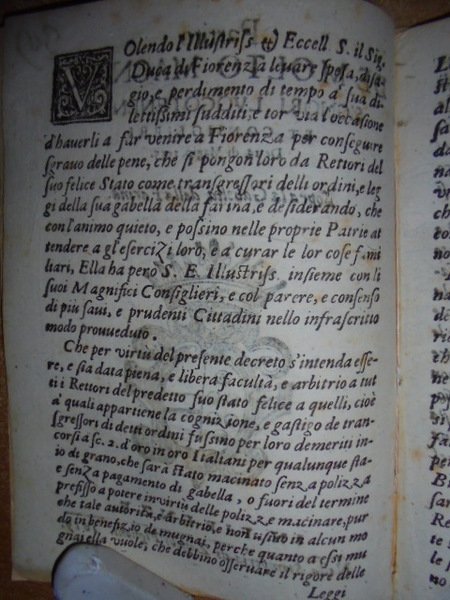 VOlendo l'Illustriss. & Eccell. S. il Sig.
Duca di Fiorenza leuare spesa, disa-
gio, e perdimento di tempo a sua di-
lettissimi sudditi, e tor via l'occasione
d'hauerli a far venire a Fiorenza per conseguire
sgrauo delle pene, che si pongon loro da Rettori del
suo felice Stato come transgressori delli ordini, e leg
gi della sua gabella della farina, e desiderando, che
con l'animo quieto, e possino nelle proprie Patrie at
tendere a gl'esercizi loro, e a curar le lor cose fami
liari, Ella ha però S. E. Illustriss. insieme con li
suoi Magnifici Consiglieri, e col parere, e consenso
di piu saui, e prudenti Cittadini nello infrascritto
modo proueduto.
Che per virtù del presente decreto s'intenda esse-
re, e sia data piena, e libera facultà, e arbitrio a tut
ti i Rettori del predetto suo stato felice a quelli, cioè
a' quali appartiene la cognizione, e gastigo de tran-
sgressori di detti ordini fussino per loro demeriti in-
corsi a sc. 2. d'oro in oro Italiani per qualunque sta-
io di grano, che sarà stato macinato senza polizza
e senza pagamento di gabella, o fuori del termine
prefisso a potere in virtù delle polizze macinare, pur
che tale autorità, e arbitrio, e non usino in alcun mo
do in benefizio de mugnai, perche quanto a essi mu
gnai ella vuole, che debbino osseruare il rigore delle
Leggi